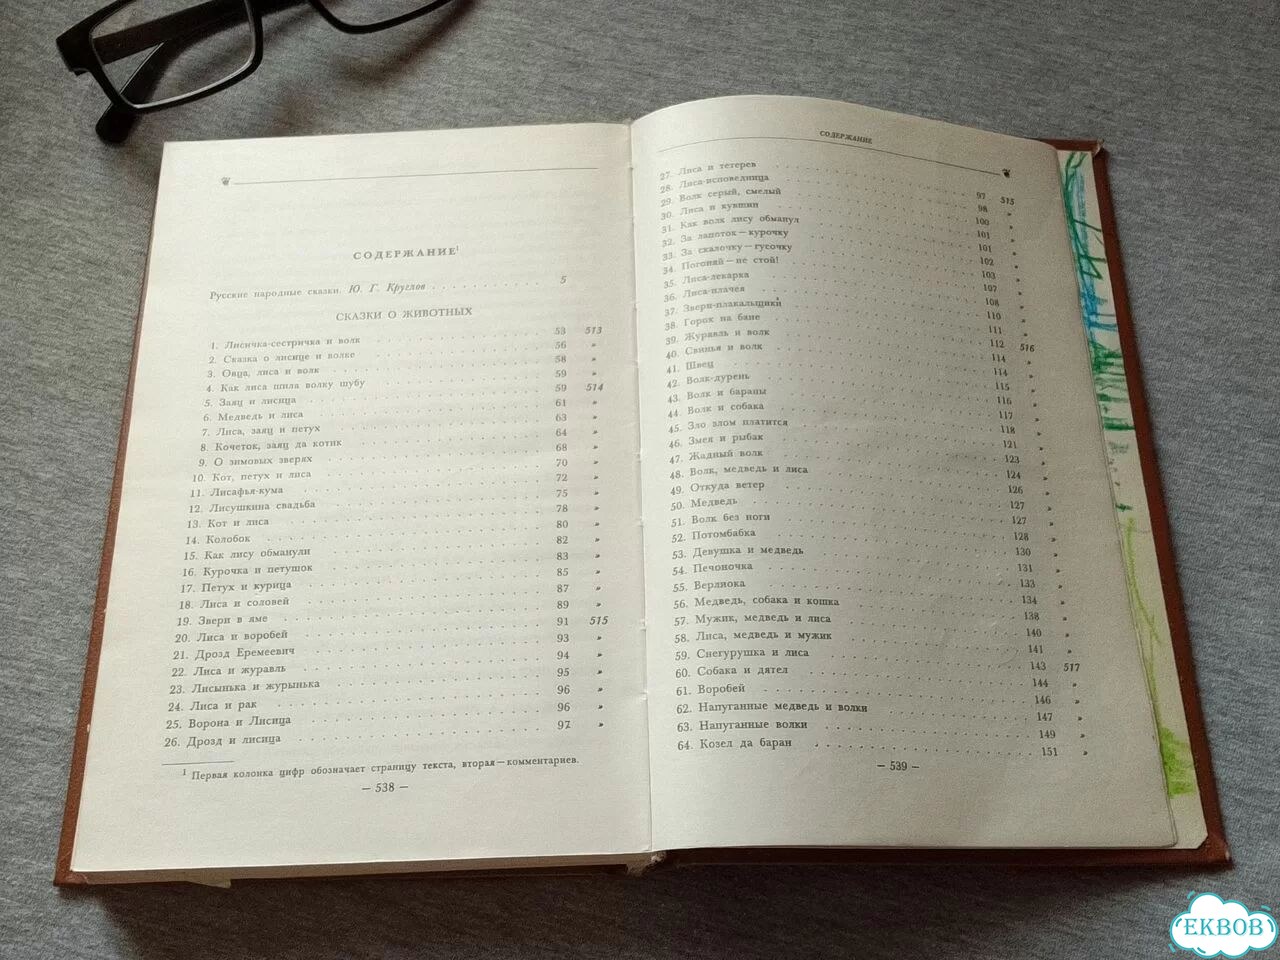 СОДЕРЖАНИЕ¹
Русские народные сказки. Ю. Г. Круглов . . . 5
СКАЗКИ О ЖИВОТНЫХ
1. Лисичка-сестричка и волк . . . 53 513
2. Сказка о лисице и волке . . . 56 »
3. Овца, лиса и волк . . . 58 »
4. Как лиса шила волку шубу . . . 59 »
5. Заяц и лисица . . . 59 514
6. Медведь и лиса . . . 61 »
7. Лиса, заяц и петух . . . 63 »
8. Кочеток, заяц да котик . . . 64 »
9. О зимовых зверях . . . 68 »
10. Кот, петух и лиса . . . 70 »
11. Лисафья-кума . . . 72 »
12. Лисушкина свадьба . . . 75 »
13. Кот и лиса . . . 78 »
14. Колобок . . . 80 »
15. Как лису обманули . . . 82 »
16. Курочка и петушок . . . 83 »
17. Петух и курица . . . 85 »
18. Лиса и соловей . . . 87 »
19. Звери в яме . . . 89 »
20. Лиса и воробей . . . 91 515
21. Дрозд Еремеевич . . . 93 »
22. Лиса и журавль . . . 94 »
23. Лисынька и журынька . . . 95 »
24. Лиса и рак . . . 96 »
25. Ворона и Лисица . . . 96 »
26. Дрозд и лисица . . . 97 »
¹ Первая колонка цифр обозначает страницу текста, вторая — комментариев.
— 538 —
СОДЕРЖАНИЕ
27. Лиса и тетерев . . . 97 515
28. Лиса-исповедница . . . 98 »
29. Волк серый, смелый . . . 100 »
30. Лиса и кувшин . . . 101 »
31. Как волк лису обманул . . . 101 »
32. За лапоток — курочку . . . 102 »
33. За скалочку — гусочку . . . 103 »
34. Погоняй — не стой! . . . 107 »
35. Лиса-лекарка . . . 108 »
36. Лиса-плачея . . . 110 »
37. Звери-плакальщики . . . 111 »
38. Горох на бане . . . 112 516
39. Журавль и волк . . . 114 »
40. Свинья и волк . . . 114 »
41. Швец . . . 115 »
42. Волк-дурень . . . 116 »
43. Волк и бараны . . . 117 »
44. Волк и собака . . . 118 »
45. Зло злом платится . . . 121 »
46. Змея и рыбак . . . 123 »
47. Жадный волк . . . 124 »
48. Волк, медведь и лиса . . . 126 »
49. Откуда ветер . . . 127 »
50. Медведь . . . 127 »
51. Волк без ноги . . . 128 »
52. Потомбабка . . . 130 »
53. Девушка и медведь . . . 131 »
54. Печоночка . . . 133 »
55. Верлиока . . . 134 »
56. Медведь, собака и кошка . . . 138 »
57. Мужик, медведь и лиса . . . 140 »
58. Лиса, медведь и мужик . . . 141 »
59. Снегурушка и лиса . . . 143 517
60. Собака и дятел . . . 144 »
61. Воробей . . . 146 »
62. Напуганные медведь и волки . . . 147 »
63. Напуганные волки . . . 149 »
64. Козел да баран . . . 151 »
— 539 —
EKBOB